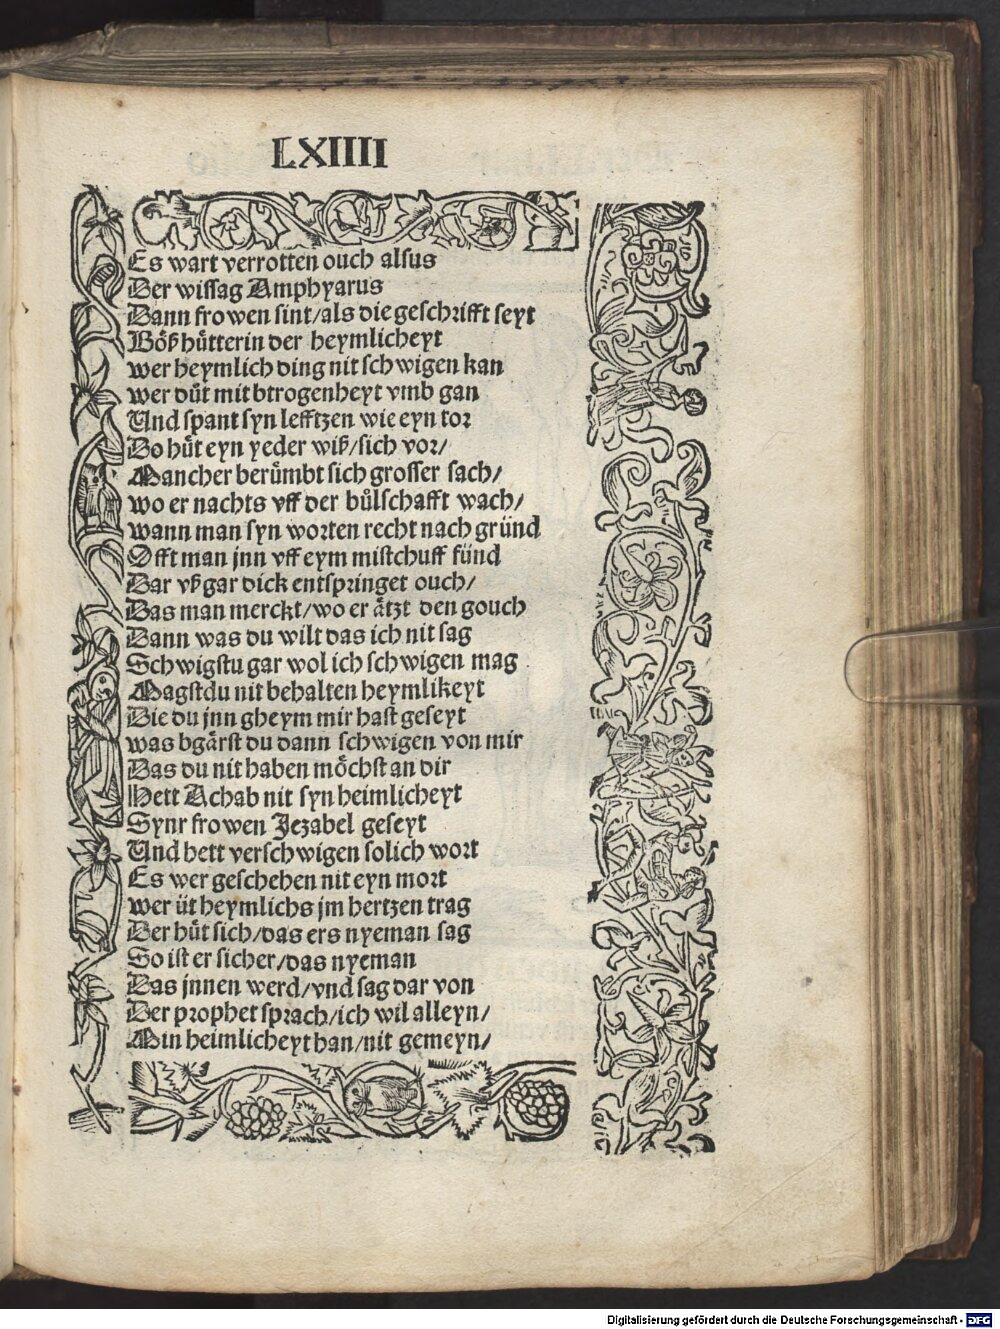 LXIIII
Es wart verrotten ouch alsus
Der wissag Amphyarus
Dann frowen sint/als die geschrifft seyt
Bőß hu̍tterin der heymlicheyt
wer heymlich ding nit schwigen kan
wer du̍t mit btrogenheyt vmb gan
Und spant syn lefftzen wie eyn tor
Do hu̍t eyn yeder wiß/sich vor/
Mancher beru̍mbt sich grosser sach/
wo er nachts vff der bůlschafft wach/
wann man syn worten recht nach gründ
Offt man jnn vff eym mistchuff fünd
Dar vß gar dick entspringet ouch/
Das man merckt/wo er åtzt den gouch
Dann was du wilt das ich nit sag
Schwigstu gar wol ich schwigen mag
Magstdu nit behalten heymlikeyt
Die du jnn gheym mir hast geseyt
was bgärst du dann schwigen von mir
Das du nit haben möchst an dir
Hett Achab nit syn heimlicheyt
Synr frowen Jezabel geseyt
Und hett verschwigen solich wort
Es wer geschehen nit eyn mort
wer üt heymlichs jm hertzen trag
Der hu̍t sich/das ers nyeman sag
So ist er sicher/das nyeman
Das jnnen werd/vnd sag dar von
Der prophet sprach/ich wil alleyn/
Min heimlicheyt han/nit gemeyn/
Digitalisierung gefördert durch die Deutsche Forschungsgemeinschaft - DFG